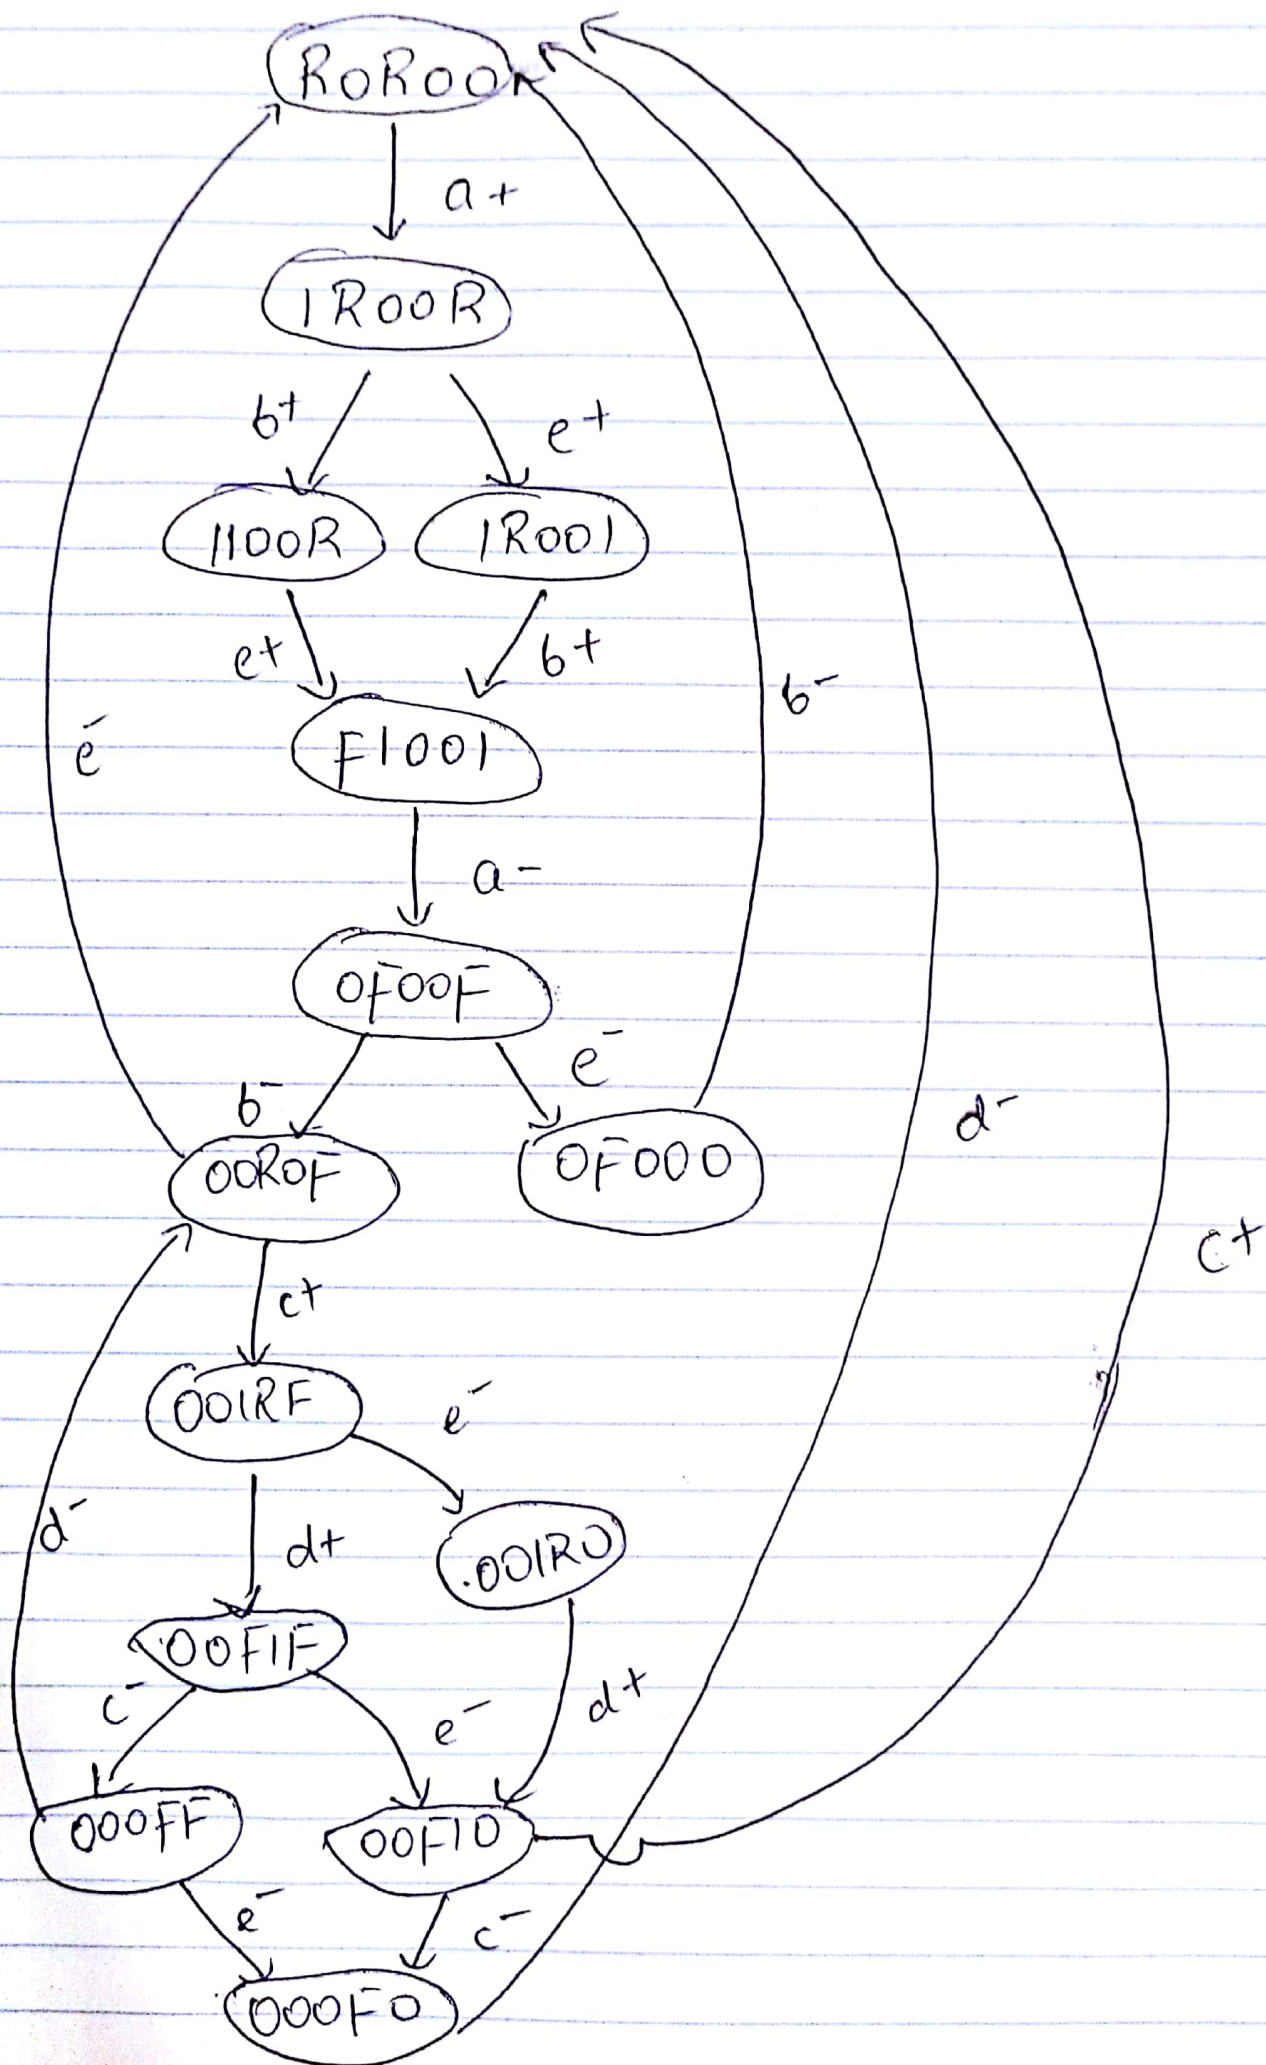 R0R00
a+
1R00R
b+ e+
1100R 1R001
e+ b+
F1001
b-
e-
a-
0F00F
e-
b-
d-
00R0F 0F000
c+
c+
001RF e-
d-
d+ .001R0
00F1F
c- e- d+
000FF 00F10
e- c-
000F0